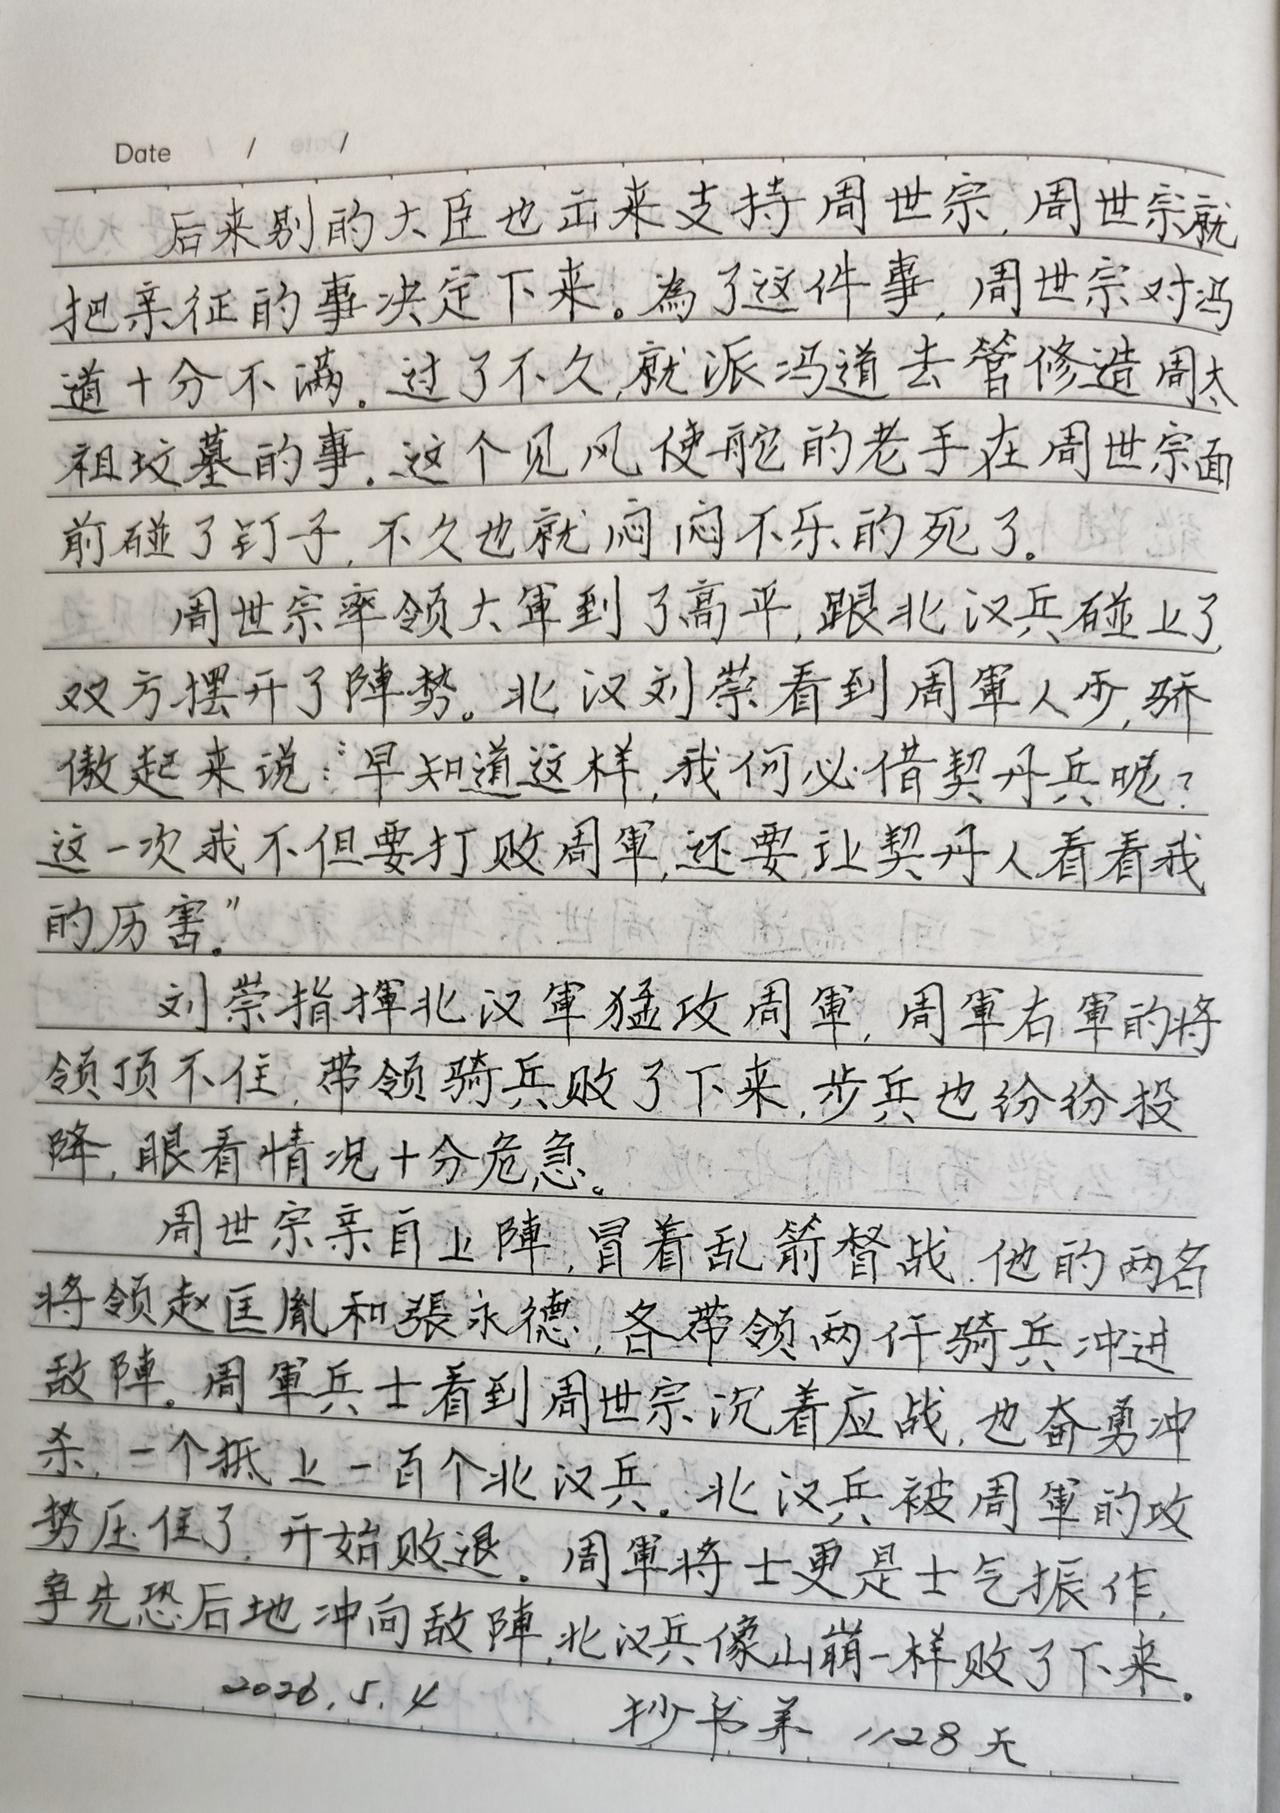 Date / /
后来别的大臣也出来支持周世宗,周世宗就
把亲征的事决定下来。為了这件事,周世宗对冯
道十分不满。过了不久,就派冯道去管修造周太
祖坟墓的事。这个见风使舵的老手在周世宗面
前碰了钉子,不久也就闷闷不乐的死了。
周世宗率领大軍到了高平,跟北汉兵碰上了,
双方摆开了陣势。北汉刘崇看到周軍人少,骄
傲起来说:“早知道这样,我何必借契丹兵呢?
这一次我不但要打败周軍,还要让契丹人看看我
的厉害。”
刘崇指揮北汉軍猛攻周軍,周軍右軍的将
领顶不住,带领骑兵败了下来,步兵也纷纷投
降,眼看情况十分危急。
周世宗亲自上陣,冒着乱箭督战.他的两名
将领赵匡胤和張永德,各带领两仟骑兵冲进
敌陣。周軍兵士看到周世宗沉着应战,也奋勇冲
杀,一个抵上一百个北汉兵。北汉兵被周軍的攻
势压住了,开始败退。周軍将士更是士气振作,
争先恐后地冲向敌陣,北汉兵像山崩一样败了下来。
2026.5.4 抄书第 1128天